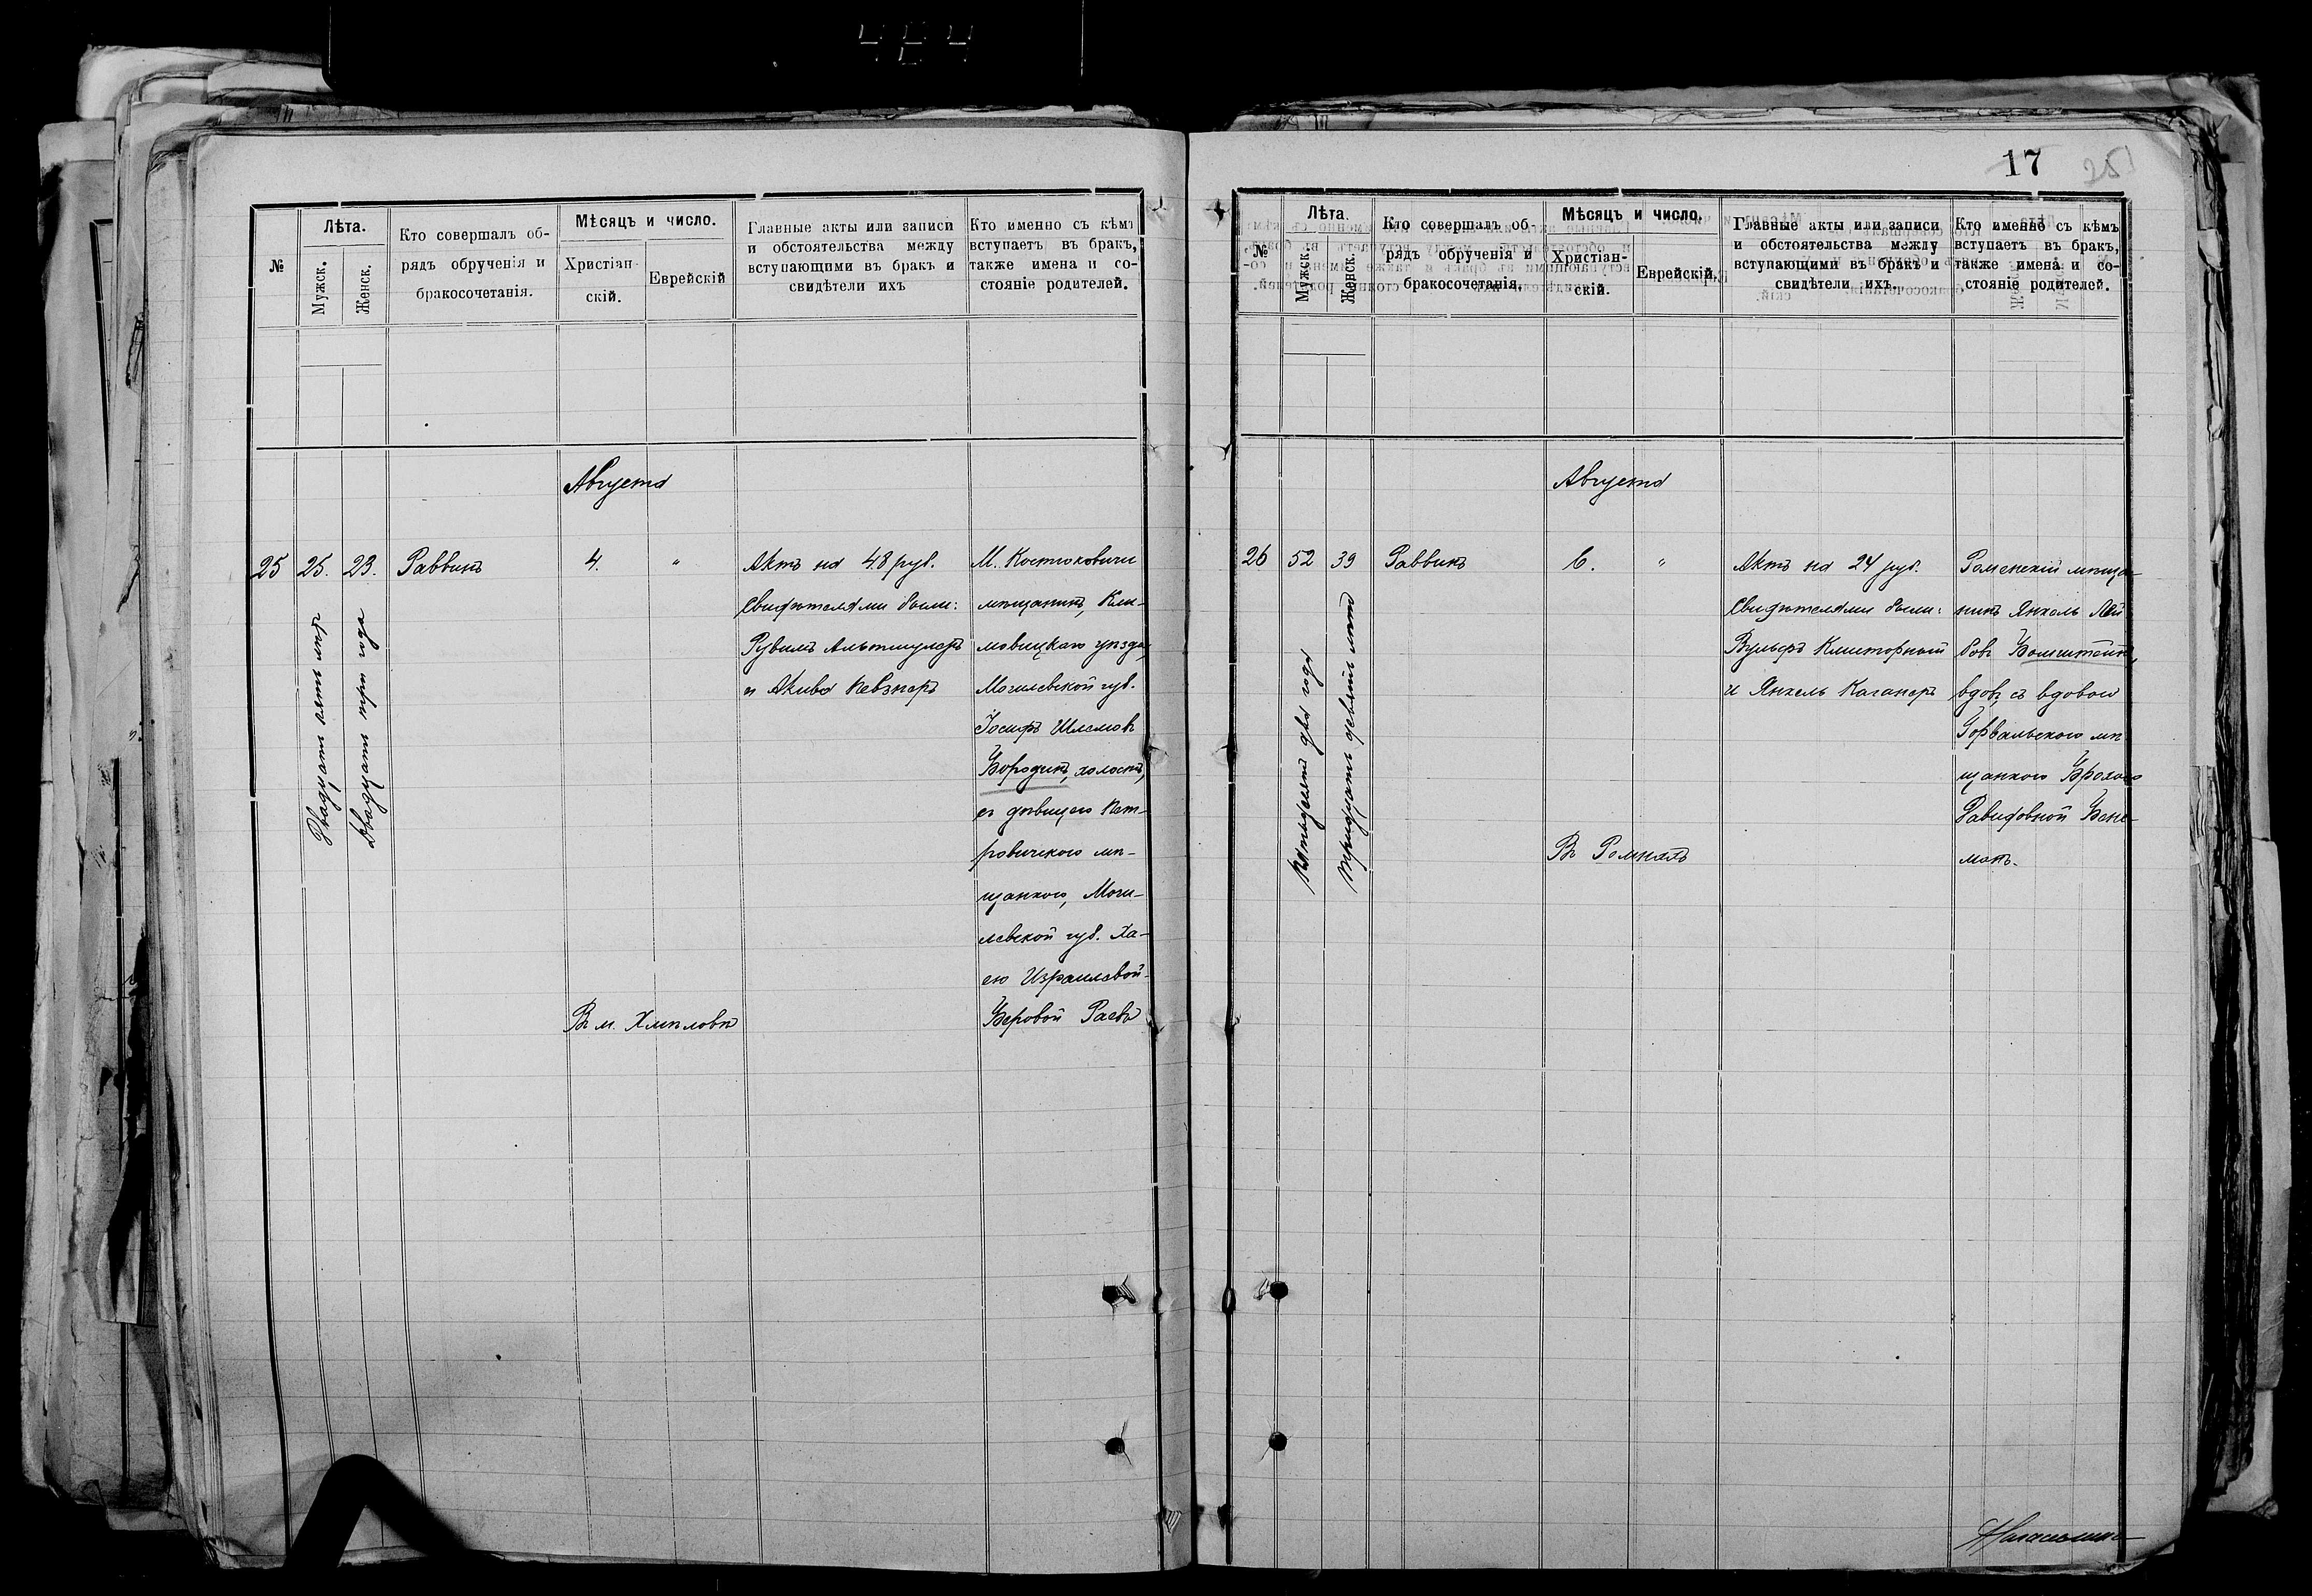 17
251
№
Лѣта.
Мужск.
Женск.
Кто совершалъ об-
рядъ обрученія и
бракосочетанія.
Мѣсяцъ и число.
Христіан-
скій.
Еврейскій
Главные акты или записи
и обстоятельства между
вступающими въ бракъ и
свидѣтели ихъ
Кто именно съ кѣмъ
вступаетъ въ бракъ,
также имена и со-
стояніе родителей.
Августа
25
25.
23.
Двадцать пять лѣтъ
Двадцать три года
Раввинъ
4.
"
Въ м. Хмѣловѣ
Актъ на 48 руб.
Свидѣтелями были:
Рувимъ Альтшулеръ
и Акива Певзнеръ
М. Костюковичи
мѣщанинъ, Кли-
мовицкаго уѣзда,
Могилевской губ.
Іосифъ Шлемовъ
Бородинъ, холостъ,
съ дѣвицею Пет-
ровичскою мѣ-
щанкою, Моги-
левской губ. Ха-
ею Израилевой-
Беровой Раевъ
№
Лѣта.
Мужск.
Женск.
Кто совершалъ об-
рядъ обрученія и
бракосочетанія.
Мѣсяцъ и число.
Христіан-
скій.
Еврейскій.
Главные акты или записи
и обстоятельства между
вступающими въ бракъ и
свидѣтели ихъ.
Кто именно съ кѣмъ
вступаетъ въ бракъ,
также имена и со-
стояніе родителей.
Августа
26
52
39
Пятьдесятъ два года
Тридцать девять лѣтъ
Раввинъ
6.
"
Въ Ромнахъ
Актъ на 24 руб.
Свидѣтелями были:
Вульфъ Клигторный
и Янкель Каганеръ
Роменскій мѣща-
нинъ Янкель Лей
бовъ Бомштейнъ,
вдовъ, съ вдовою
Горвальскою мѣ
щанкою Брохою
Давидовной Бень-
манъ.